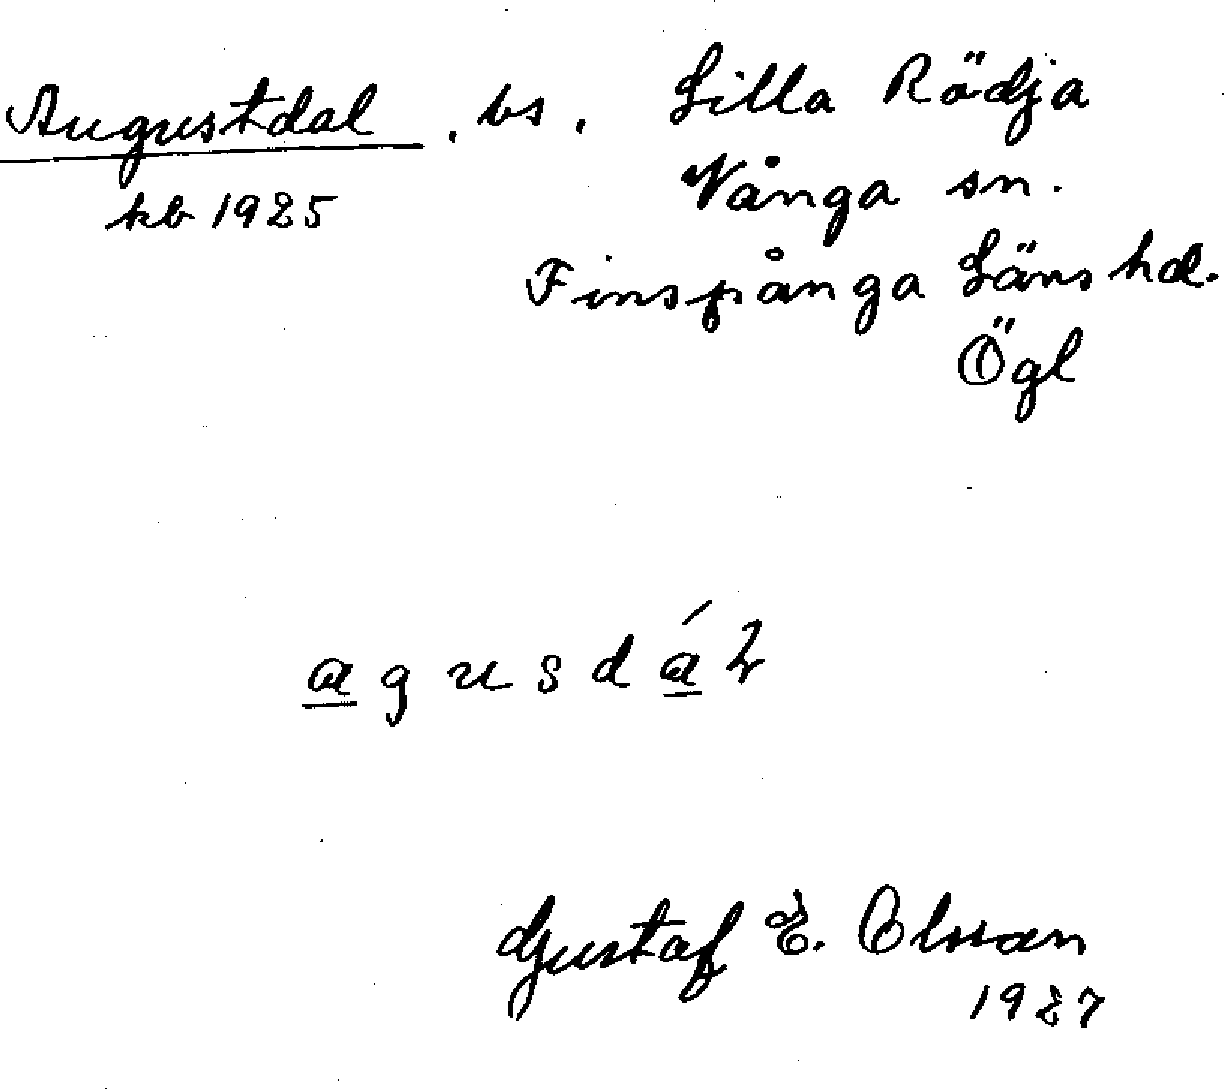 Augustdal . bs. Lilla Rödja
kb 1925 Vånga sn.
Finspånga Läns hd.
Ögl
agusdáɫ
Gustaf E. Olsson
1927